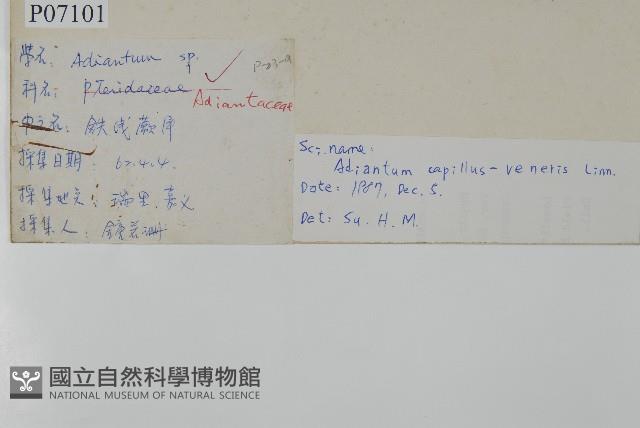 P07101
學名: Adiantum sp.
P-23-9
科名: Pteridaceae
Adiantaceae
中文名: 鉄線蕨屬
採集日期: 62.4.4.
採集地点: 瑞里.嘉义
採集人:
Sci. name:
Adiantum capillus-veneris Linn.
Date: 1987, Dec. 5.
Det: Su. H. M.
國立自然科學博物館
NATIONAL MUSEUM OF NATURAL SCIENCE